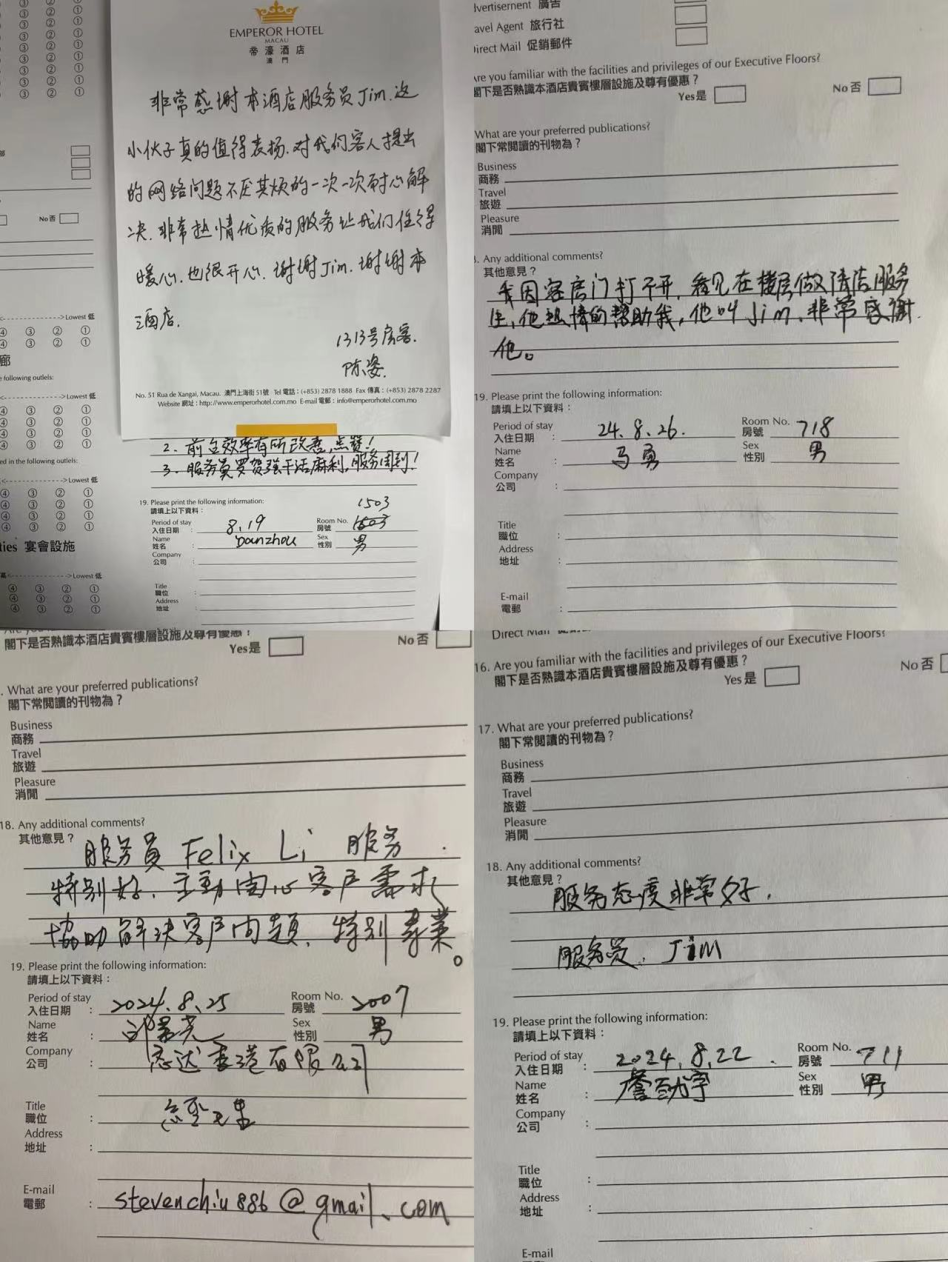 EMPEROR HOTEL
MACAU
帝濠酒店
澳門
非常感谢本酒店服务员Jim.这
小伙子真的值得表扬.对我们客人提出
的网络问题不厌其烦的一次一次耐心解
决.非常热情优质的服务让我们住得
暖心.也很开心.谢谢Jim.谢谢本
酒店.
1313号房客.
陈姿.
No. 51 Rua de Xangai, Macau. 澳門上海街 51號 Tel 電話 : (+853) 2878 1888 Fax 傳真 : (+853) 2878 2287
Website 網址 : http://www.emperorhotel.com.mo E-mail 電郵 : info@emperorhotel.com.mo
2. 前台效率有所改善,点赞!
3. 服务员干活麻利,服务周到!
19. Please print the following information:
請填上以下資料 :
1503
Period of stay
入住日期 : 8.19
Room No.
房號
Name
姓名 : Danzhou
Sex
性別 男
Company
公司 :
Title
職位 :
Address
地址 :
No 否
--> Lowest 低
④ ③ ② ①
④ ③ ② ①
廊
e following outlets:
--> Lowest 低
④ ③ ② ①
ed in the following outlets:
--> Lowest 低
④ ③ ② ①
ties 宴會設施
--> Lowest 低
④ ③ ② ①
④ ③ ② ①
dvertisement 廣告
avel Agent 旅行社
Direct Mail 促銷郵件
Are you familiar with the facilities and privileges of our Executive Floors?
閣下是否熟識本酒店貴賓樓層設施及尊有優惠?
Yes是 No 否
What are your preferred publications?
閣下常閱讀的刊物為?
Business
商務
Travel
旅遊
Pleasure
消閒
. Any additional comments?
其他意見?
我因客房门打不开,看见在樓层做清洁服务
生,他热情的幫助我,他叫Jim,非常感谢
他。
19. Please print the following information:
請填上以下資料 :
Period of stay
入住日期 : 24.8.26.
Room No.
房號 718
Name
姓名 : 马勇
Sex
性別 男
Company
公司 :
Title
職位 :
Address
地址 :
E-mail
電郵 :
閣下是否熟識本酒店貴賓樓層設施及尊有優惠?
Yes是 No 否
. What are your preferred publications?
閣下常閱讀的刊物為?
Business
商務
Travel
旅遊
Pleasure
消閒
18. Any additional comments?
其他意見?
服务員 Felix Li 服务
特别好.主動関心客户需求
協助解決客户问题.特别專業。
19. Please print the following information:
請填上以下資料 :
Period of stay
入住日期 : 2024.8.25
Room No.
房號 2007
Name
姓名 :
Sex
性別 男
Company
公司 : 香港有限公司
Title
職位 :
Address
地址 :
E-mail
電郵 : stevenchiu886@gmail.com
Direct Mail
16. Are you familiar with the facilities and privileges of our Executive Floors?
閣下是否熟識本酒店貴賓樓層設施及尊有優惠?
Yes 是 No 否
17. What are your preferred publications?
閣下常閱讀的刊物為?
Business
商務
Travel
旅遊
Pleasure
消閒
18. Any additional comments?
其他意見?
服务态度非常好.
服务员. Jim
19. Please print the following information:
請填上以下資料 :
Period of stay
入住日期 : 2024.8.22
Room No.
房號 711
Name
姓名 :
Sex
性別 男
Company
公司 :
Title
職位 :
Address
地址 :
E-mail